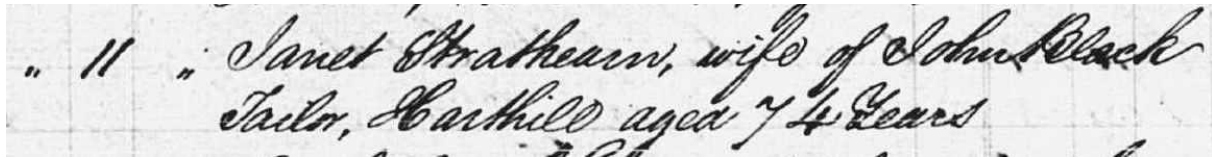 " 11 " Janet Strathearn, wife of John Black
Tailor, Harthill aged 74 Years